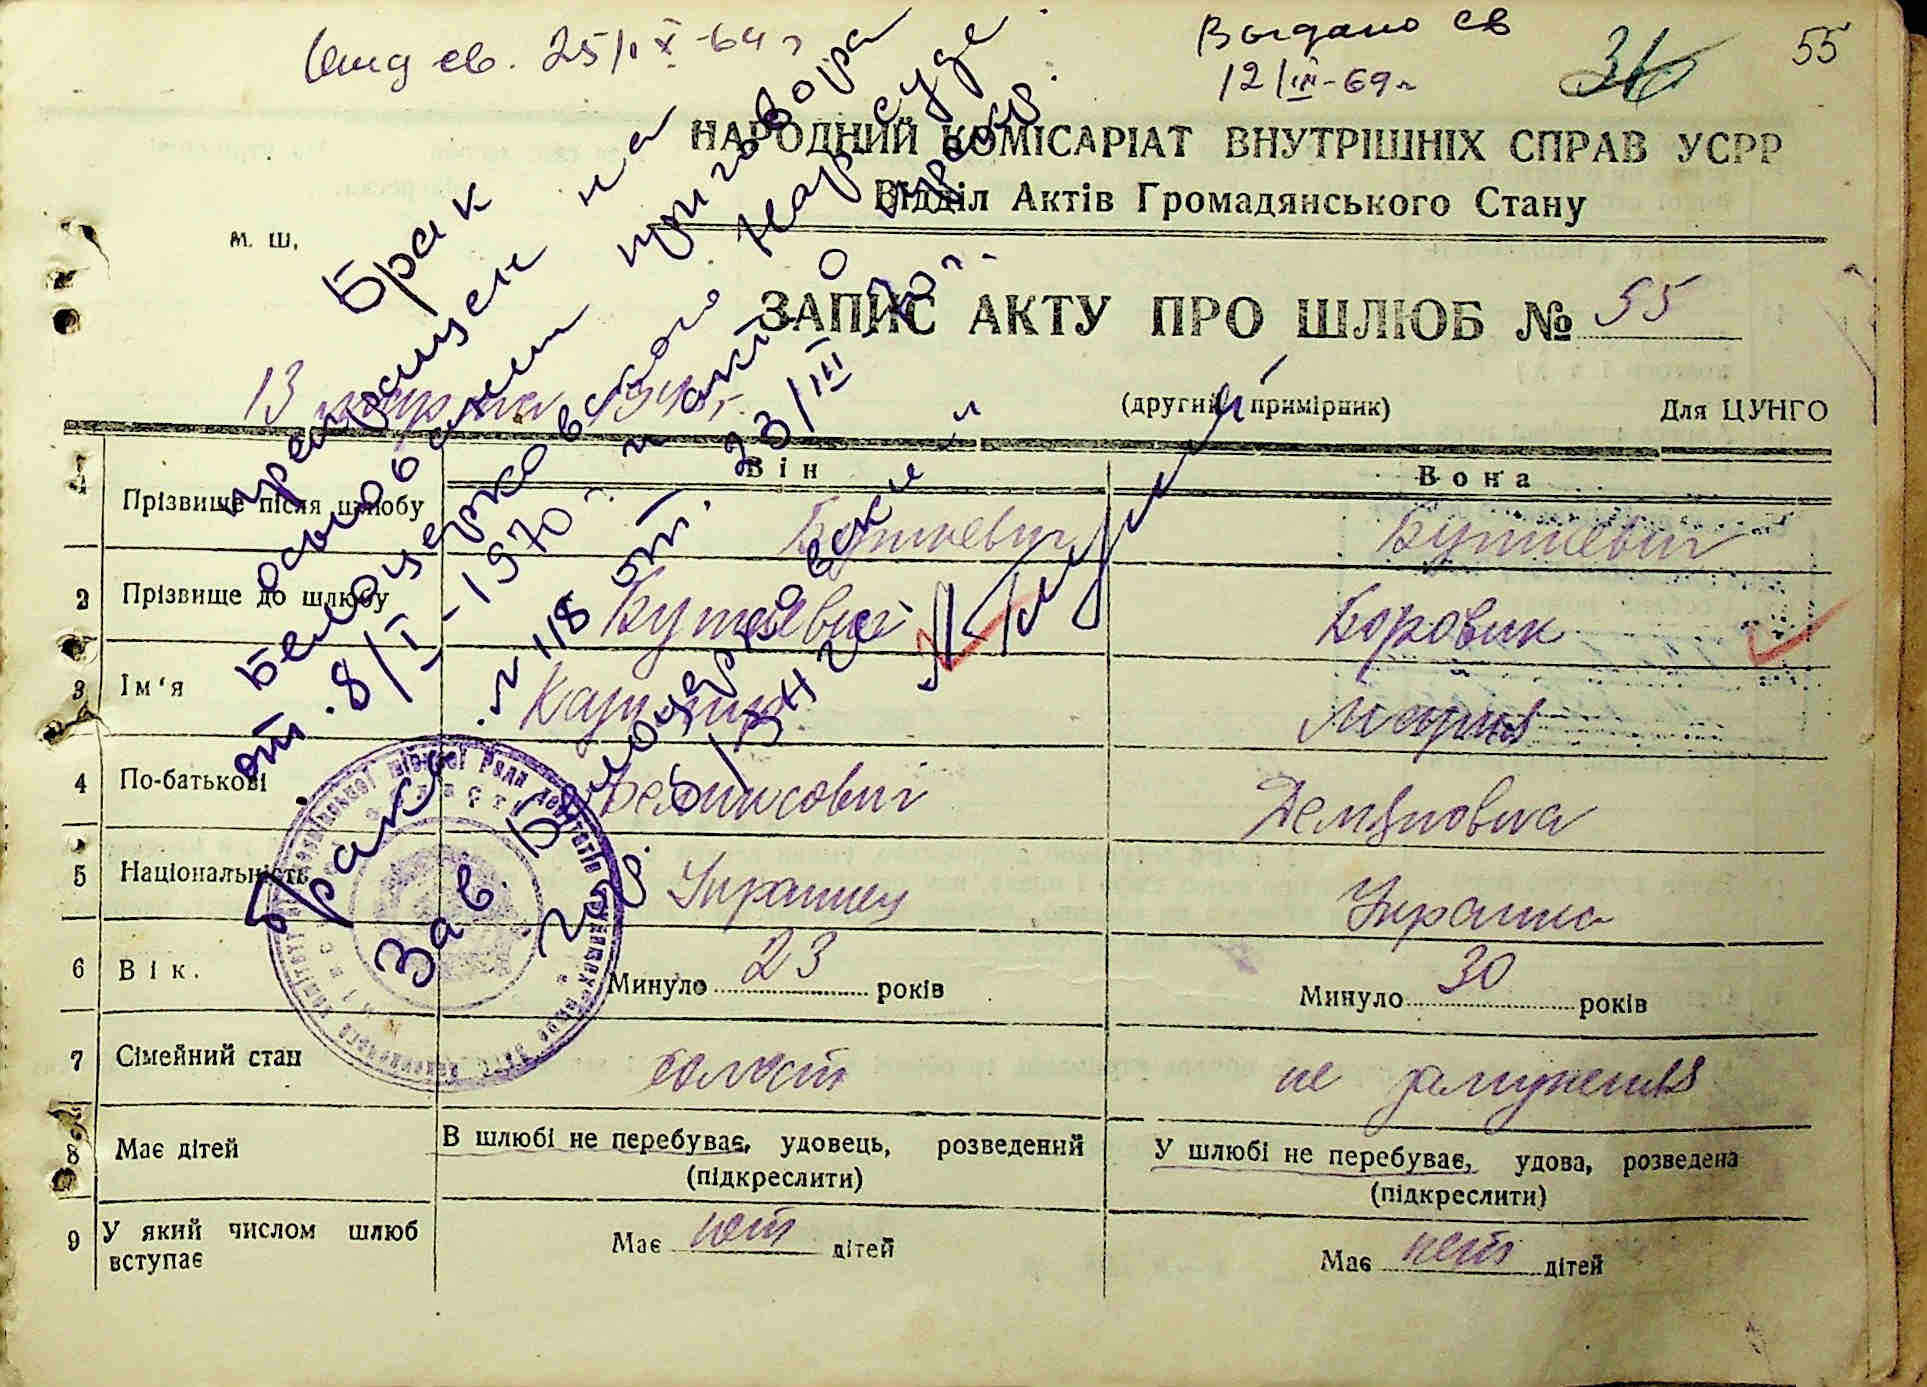 Выд св. 25/IX-64 г
Выдано св
12/III-69 г
36
55
НАРОДНИЙ КОМІСАРІАТ ВНУТРІШНІХ СПРАВ УСРР
Відділ Актів Громадянського Стану
м. ш.
ЗАПИС АКТУ ПРО ШЛЮБ № 55
13 марта
(другий примірник)
Для ЦУНГО
Брак
прекращен на
основании приговора
Белоцерковского нарсуда
от 8/I-1970 г. и акт о
№ 118 от 23/III-70 г.
брака.
Зав. Белоцерковским
гор. б/ЗАГС
Він
Вона
1 Прізвище після шлюбу
Буткевич
Буткевич
2 Прізвище до шлюбу
Буткевич
Боровик
3 Ім'я
Казимир
Мария
4 По-батькові
Демяновна
5 Національність
Украинец
Украинка
6 Вік.
Минуло 23 років
Минуло 30 років
7 Сімейний стан
холост
не замужняя
8 Має дітей
В шлюбі не перебуває, удовець, розведений
(підкреслити)
У шлюбі не перебуває, удова, розведена
(підкреслити)
9 У який числом шлюб
вступає
Має нет дітей
Має нет дітей